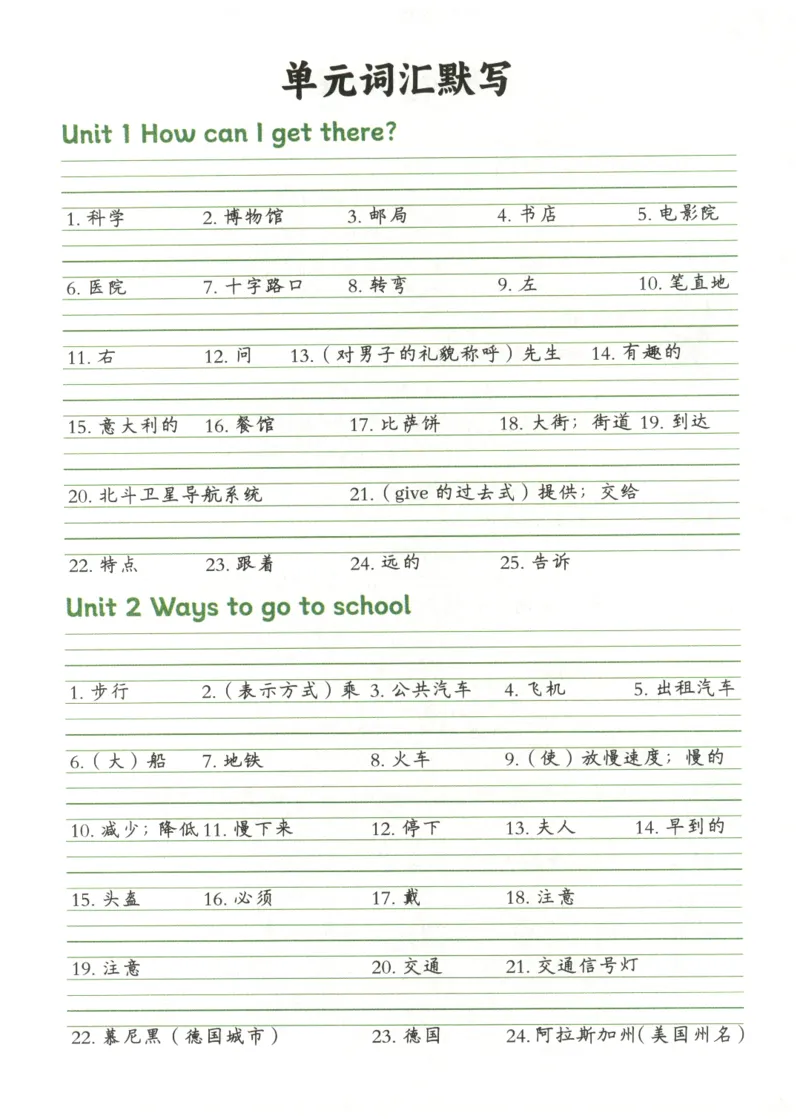 单元词汇默写
Unit 1 How can I get there?
1. 科学 2. 博物馆 3. 邮局 4. 书店 5. 电影院
6. 医院 7. 十字路口 8. 转弯 9. 左 10. 笔直地
11. 右 12. 问 13.（对男子的礼貌称呼）先生 14. 有趣的
15. 意大利的 16. 餐馆 17. 比萨饼 18. 大街；街道 19. 到达
20. 北斗卫星导航系统 21.（give 的过去式）提供；交给
22. 特点 23. 跟着 24. 远的 25. 告诉
Unit 2 Ways to go to school
1. 步行 2.（表示方式）乘 3. 公共汽车 4. 飞机 5. 出租汽车
6.（大）船 7. 地铁 8. 火车 9.（使）放慢速度；慢的
10. 减少；降低 11. 慢下来 12. 停下 13. 夫人 14. 早到的
15. 头盔 16. 必须 17. 戴 18. 注意
19. 注意 20. 交通 21. 交通信号灯
22. 慕尼黑（德国城市） 23. 德国 24. 阿拉斯加州（美国州名）